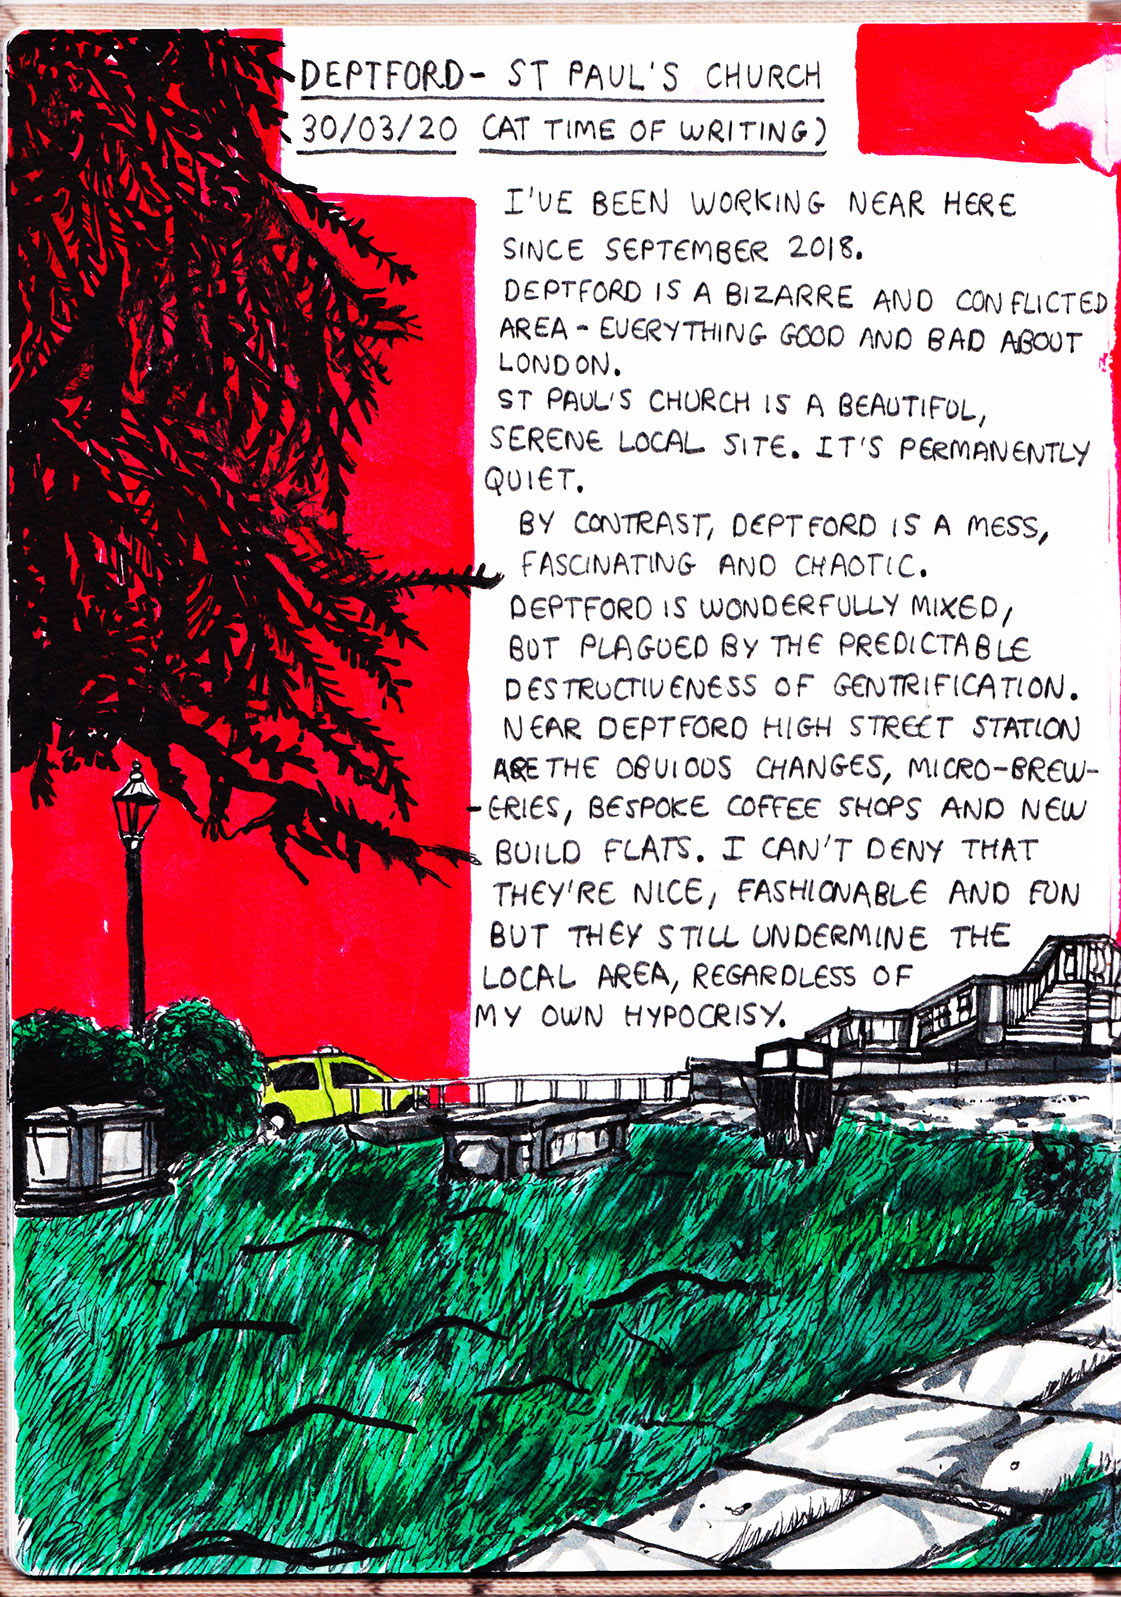 DEPTFORD- ST PAUL'S CHURCH
30/03/20 (AT TIME OF WRITING)
I'VE BEEN WORKING NEAR HERE
SINCE SEPTEMBER 2018.
DEPTFORD IS A BIZARRE AND CONFLICTED
AREA - EVERYTHING GOOD AND BAD ABOUT
LONDON.
ST PAUL'S CHURCH IS A BEAUTIFUL,
SERENE LOCAL SITE. IT'S PERMANENTLY
QUIET.
BY CONTRAST, DEPTFORD IS A MESS,
FASCINATING AND CHAOTIC.
DEPTFORD IS WONDERFULLY MIXED,
BUT PLAGUED BY THE PREDICTABLE
DESTRUCTIVENESS OF GENTRIFICATION.
NEAR DEPTFORD HIGH STREET STATION
ARE THE OBVIOUS CHANGES, MICRO-BREW-
-ERIES, BESPOKE COFFEE SHOPS AND NEW
BUILD FLATS. I CAN'T DENY THAT
THEY'RE NICE, FASHIONABLE AND FUN
BUT THEY STILL UNDERMINE THE
LOCAL AREA, REGARDLESS OF
MY OWN HYPOCRISY.